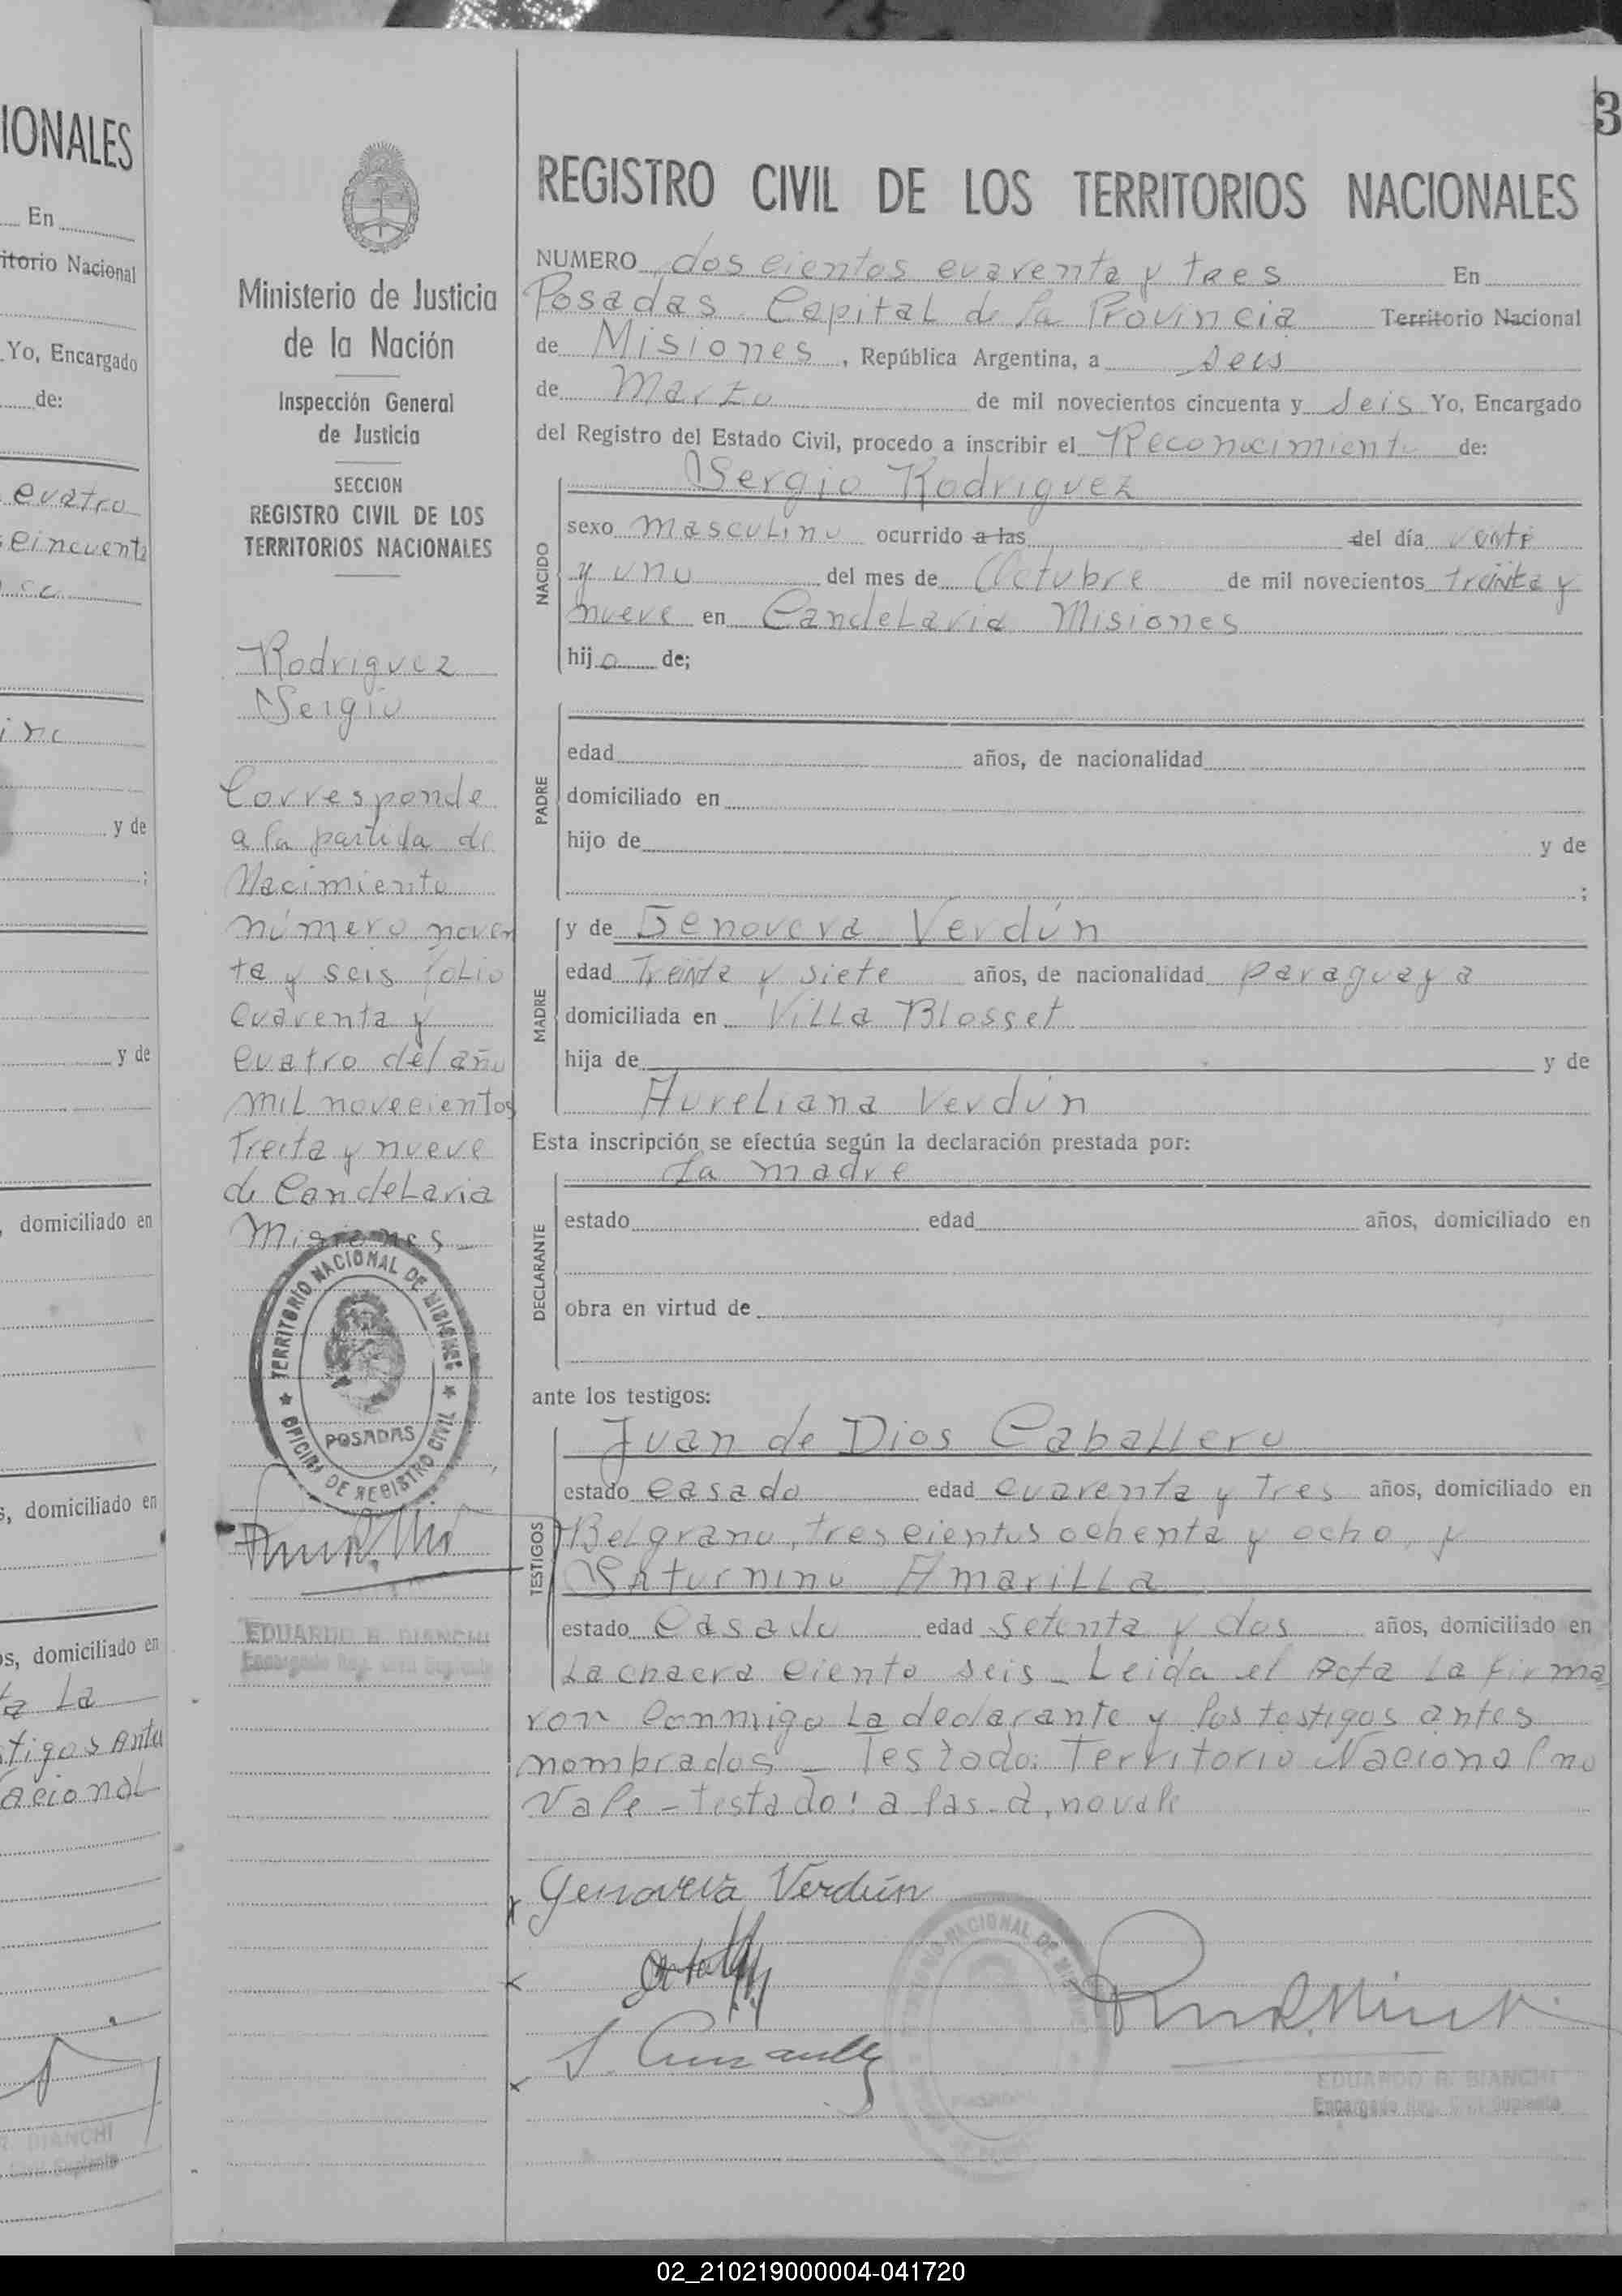 IONALES
En
itorio Nacional
Yo, Encargado
de:
cuatro
cincuenta
y de
y de
domiciliado en
s, domiciliado en
os, domiciliado en
ta La
tigos ante
acional
R. BIANCHI
3
Ministerio de Justicia
de la Nación
Inspección General
de Justicia
SECCION
REGISTRO CIVIL DE LOS
TERRITORIOS NACIONALES
Rodriguez
Sergio
Corresponde
a la partida de
Nacimiento
número noven
ta y seis folio
cuarenta y
cuatro del año
mil novecientos
Treita y nueve
de Candelaria
Misiones
TERRITORIO NACIONAL DE MISIONES
POSADAS
OFICINA DE REGISTRO CIVIL
EDUARDO R. BIANCHI
Encargado Reg. Civil Suplente
REGISTRO CIVIL DE LOS TERRITORIOS NACIONALES
NUMERO doscientos cuarenta y tres En
Posadas Capital de la Provincia Territorio Nacional
de Misiones, República Argentina, a seis
de Marzo de mil novecientos cincuenta y seis Yo, Encargado
del Registro del Estado Civil, procedo a inscribir el Reconocimiento de:
Sergio Rodriguez
NACIDO
sexo masculino ocurrido a las del día venti
y uno del mes de Octubre de mil novecientos treinta y
nueve en Candelaria Misiones
hijo de;
PADRE
edad años, de nacionalidad
domiciliado en
hijo de y de
;
MADRE
y de Genoveva Verdún
edad Treinta y siete años, de nacionalidad paraguaya
domiciliada en Villa Blosset
hija de y de
Aureliana Verdún
Esta inscripción se efectúa según la declaración prestada por:
La madre
DECLARANTE
estado edad años, domiciliado en
obra en virtud de
ante los testigos:
TESTIGOS
Juan de Dios Caballero
estado casado edad cuarenta y tres años, domiciliado en
Belgrano, trescientos ochenta y ocho, y
Saturnino Amarilla
estado casado edad setenta y dos años, domiciliado en
La chacra ciento seis_ Leida el Acta la firma
ron conmigo la declarante y los testigos antes
nombrados_ Testado: Territorio Nacional no
vale - testado: a las - d, no vale
Genoveva Verdún
EDUARDO R. BIANCHI
Encargado Reg. Civil Suplente
02_210219000004-041720